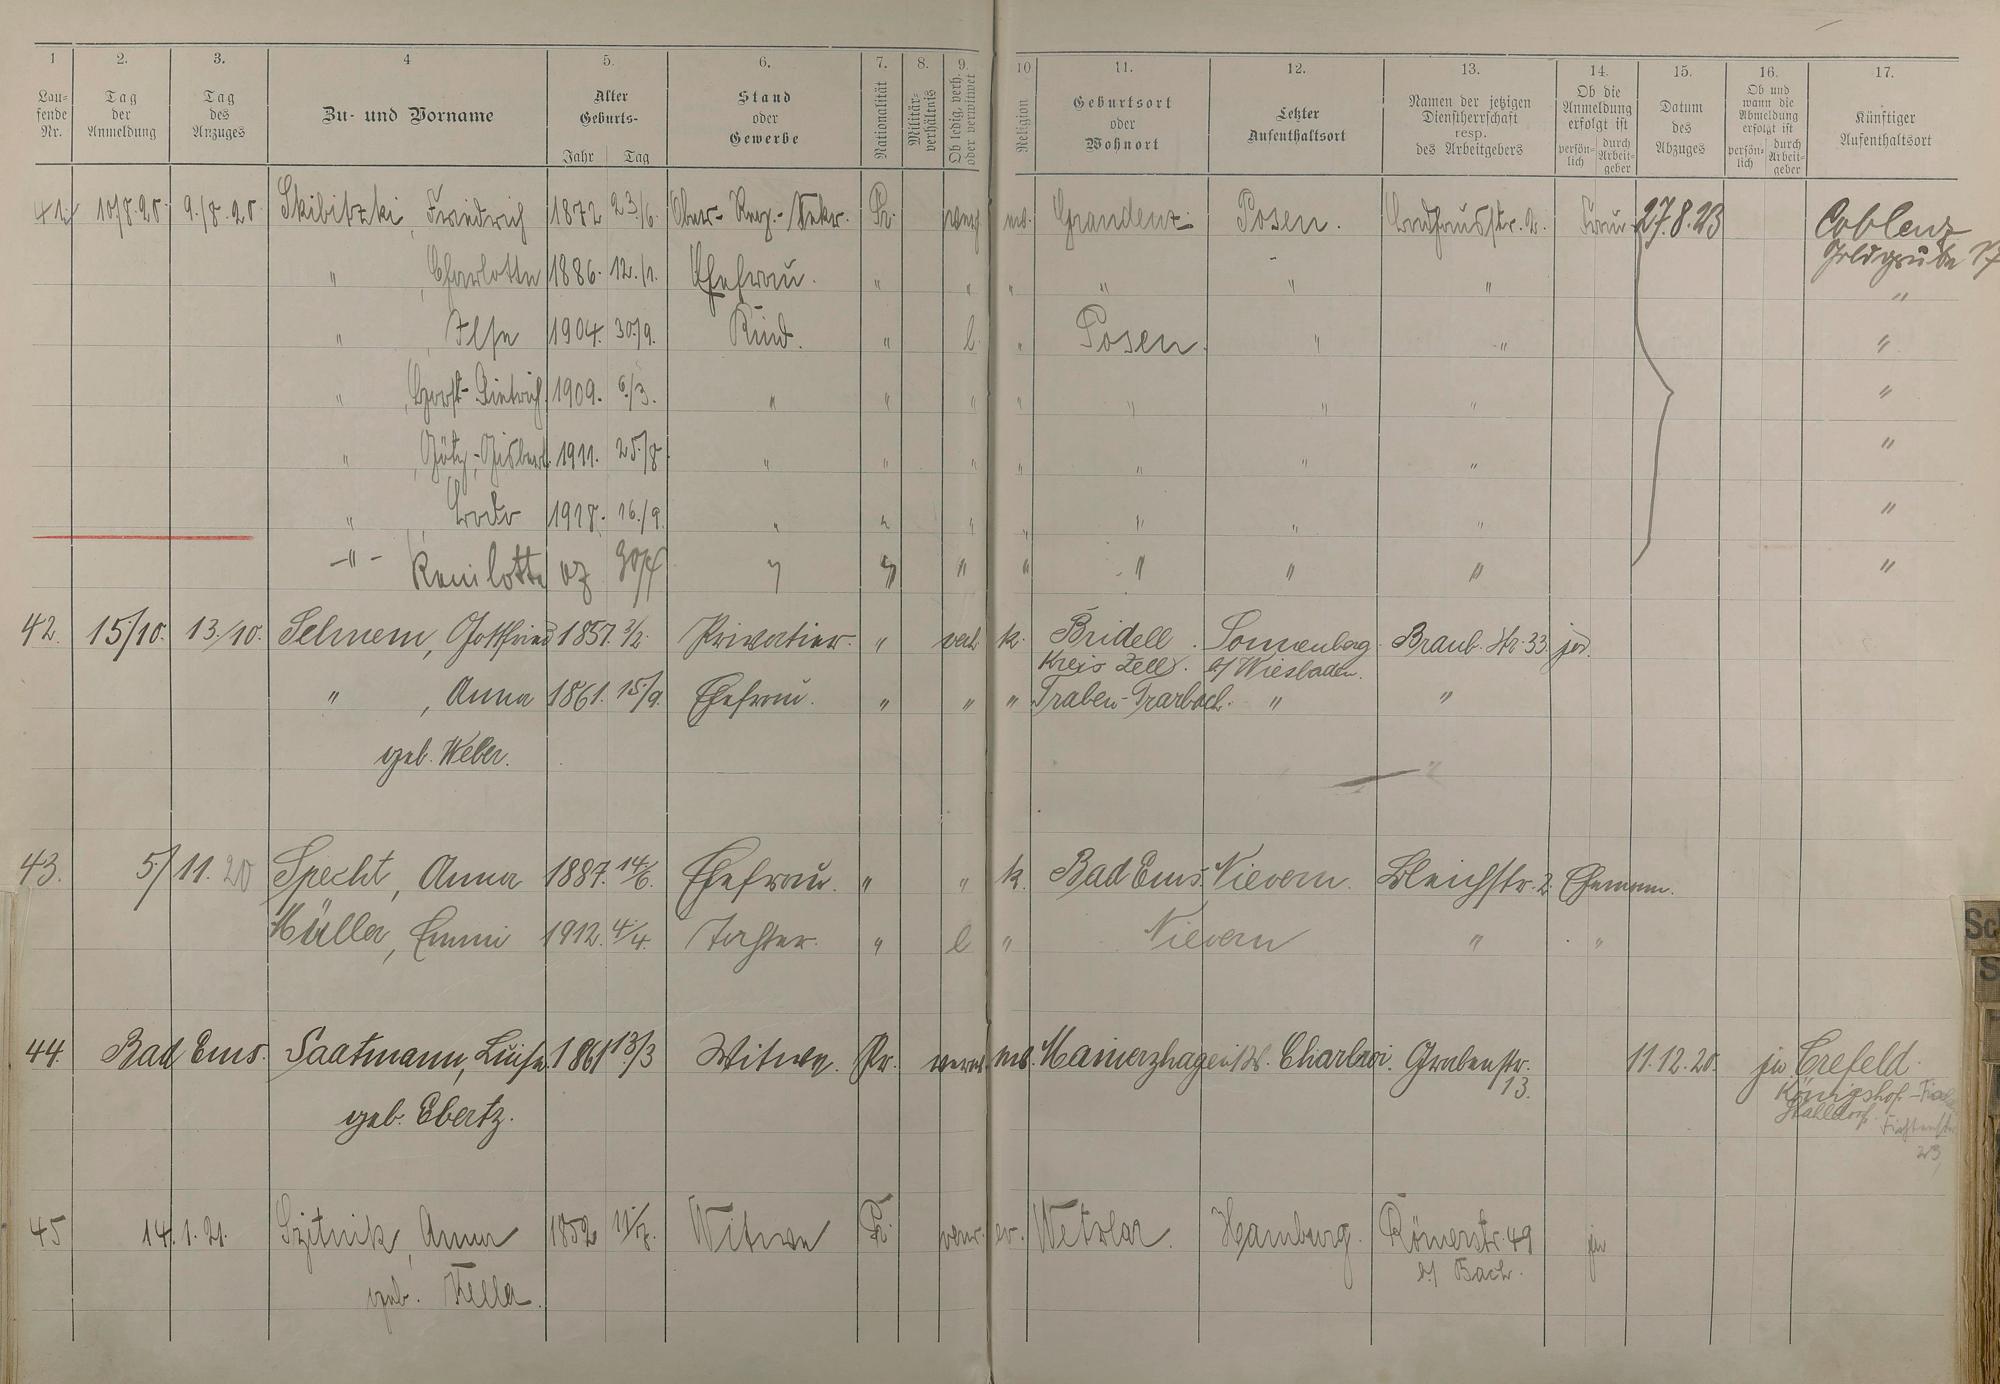 1 2. 3. 4 5. 6. 7. 8. 9. 10 11. 12. 13. 14. 15. 16. 17.
Lau-
fende
Nr.
Tag
der
Anmeldung
Tag
des
Anzuges
Zu- und Vorname
Alter
Geburts-
Jahr Tag
Stand
oder
Gewerbe
Nationalität
Militär-
verhältnis
Ob ledig, verh.
oder verwitwet
Religion
Geburtsort
oder
Wohnort
Letzter
Aufenthaltsort
Namen der jetzigen
Dienstherrschaft
resp.
des Arbeitgebers
Ob die
Anmeldung
erfolgt ist
persön-
lich
durch
Arbeit-
geber
Datum
des
Abzuges
Ob und
wann die
Abmeldung
erfolgt ist
persön-
lich
durch
Arbeit-
geber
Künftiger
Aufenthaltsort
41. 10/8.20. 9./8.20. Skibitzki, Friedrich 1872 23./6. Ober- Reg.- Sekr. Pr. ev. Graudenz Posen. Frau 27.8.23 Coblenz
Goldgrube
" , Charlotte 1886. 12./1. Ehefrau. " " " " " " "
" , Ilse 1904. 30./9. Kind. " l. " Posen. " " "
" , Horst-Dietrich 1909. 6./3. " " " " " " " "
" , Götz-Gisbert 1911. 25./8. " " " " " " " "
" , Bodo 1918. 16./9. " " " " " " " "
-"- 07 " " " " " " " "
42. 15./10. 13./10. Selmem, Gottfried 1857. 3/2. Privatier. " verh. k. Bridell. Sonnenberg Braub. Str. 33. ja.
Kreis Zell. b/ Wiesbaden.
" , Anna 1861. 15./9. Ehefrau. " " " Traben-Trarbach. " "
geb. Weber.
"
43. 5/11. 20 Specht, Anna 1887. 14/6. Ehefrau. " " k. Bad Ems. Nievern. Bleichstr. 2. Ehemann.
Müller, Emmi 1912. 4/4. Tochter. " l " Nievern " "
44. Bad Ems. Saatmann, Luise 1861 13/3 Witwe. Pr. verw. ev. Meinerzhagen i/W. Charlroi. Grabenstr. 11.12.20. ja Crefeld.
13.
Königshof
geb. Ebertz.
Fichtenstr.
23,
45 14.1.21. Szitnik, Anna 1852 Witwe Pr. verw. ev. Wetzlar. Hamburg. Römerstr. 49 ja
b/ Bach.
geb. Fella.
Sc
S